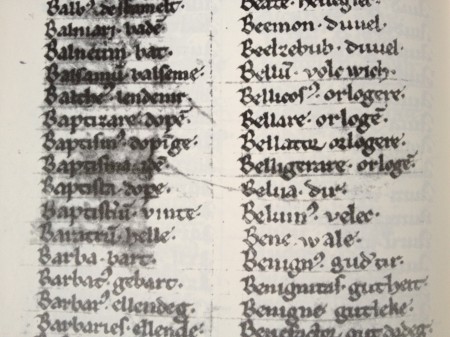 Balbꝰ. destamelt.
Balniari. badē.
Balneum. bat.
Balsamū. balseme.
Baptizare. dopē.
Baptismꝰ. dopīge.
Baptista. dope.
Baptistiū. vinte.
Baratrū. helle.
Barba. bart.
Barbatꝰ. gebart.
Barbarꝰ. ellendeg.
Barbaries. ellende.
Beate.
Beemon. duuel.
Beelzebub. duuel.
Bellū. volc wich.
Bellicosꝰ. orlogere.
Bellare. orlogē.
Bellator. orlogere.
Belligerare. orlogē.
Belua. dir.
Beluinꝰ. velec.
Bene. wale.
Benignꝰ. gudtir.
Benignitas. gutheit.
Benigne. gutleke.
Benefactor. gut dadeg.